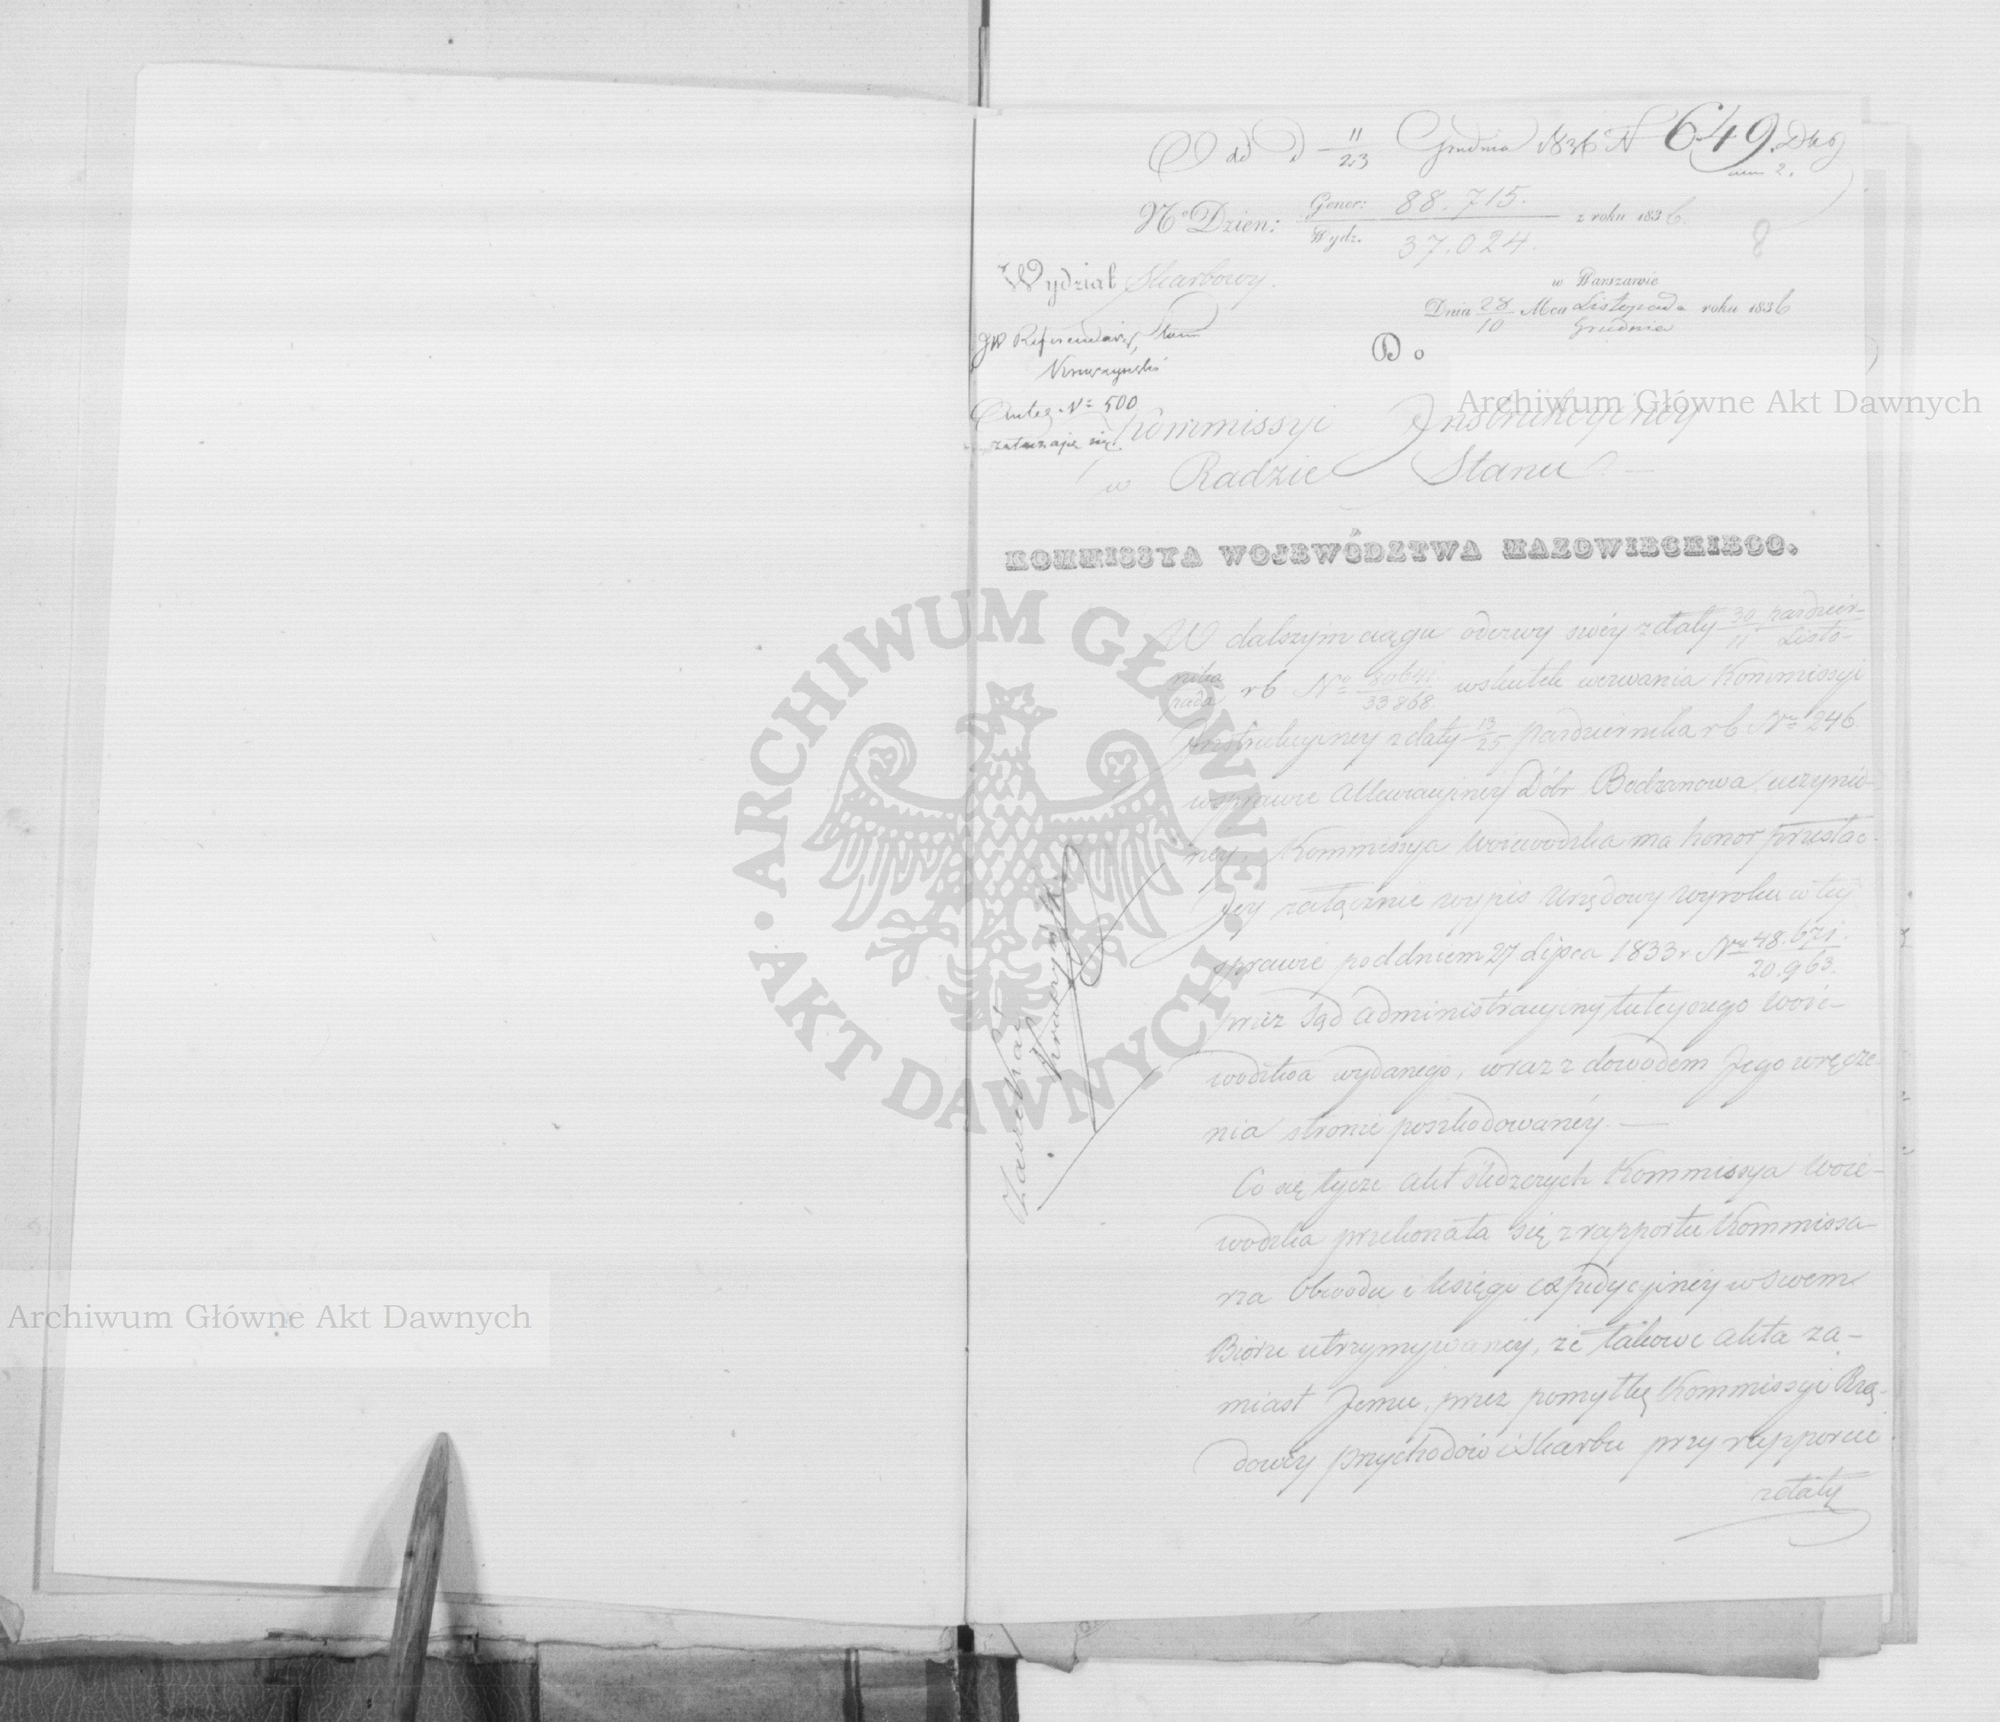 Odd d 11/23 Grudnia 1836 N 649. Dkg
2.
No Dzien: Gener: 88.715. / Wydz. 37.024. z roku 1836
8
Wydział Skarbowy.
w Warszawie
Dnia 28/10 Mca Listopada/Grudnia roku 1836
JW Referendarz Stanu
Do
500
załączają się
Kommissyi Instrukcyiney
w Radzie Stanu
KOMMISSYA WOJEWÓDZTWA MAZOWIECKIEGO.
W dalszym ciągu odezwy swéy z daty 30/11 Paździer-/Listo-
nika/pada rb No 80641/33868 wskutek wezwania Kommissyi
Instrukcyiney z daty 13/25 Października rb No 246
w sprawie allewiacyiney Dóbr Bodzanowa uczynio-
ney, Kommissya Woiewodzka ma honor przesłać
Jey załącznie wypis urzędowy wyroku w tey
sprawie pod dniem 27 Lipca 1833 r No 48.671/20.963.
przez Sąd administracyiny tuteyszego Woie-
wodztwa wydanego, wraz z dowodem Jego wręcze-
nia stronie poszkodowanéy.—
Co się tycze akt śledzczych Kommissya Woie-
wodzka przekonała się z rapportu Kommissa-
rza Obwodu i księgi expedycyinéy w swem
Biórze utrzymywanéy, że takowe akta za-
miast Jemu, przez pomyłkę Kommissyi Rzą-
dowéy Przychodów i Skarbu przy rapporcie
z daty
Archiwum Główne Akt Dawnych
Archiwum Główne Akt Dawnych
ARCHIWUM GŁÓWNE • AKT DAWNYCH •